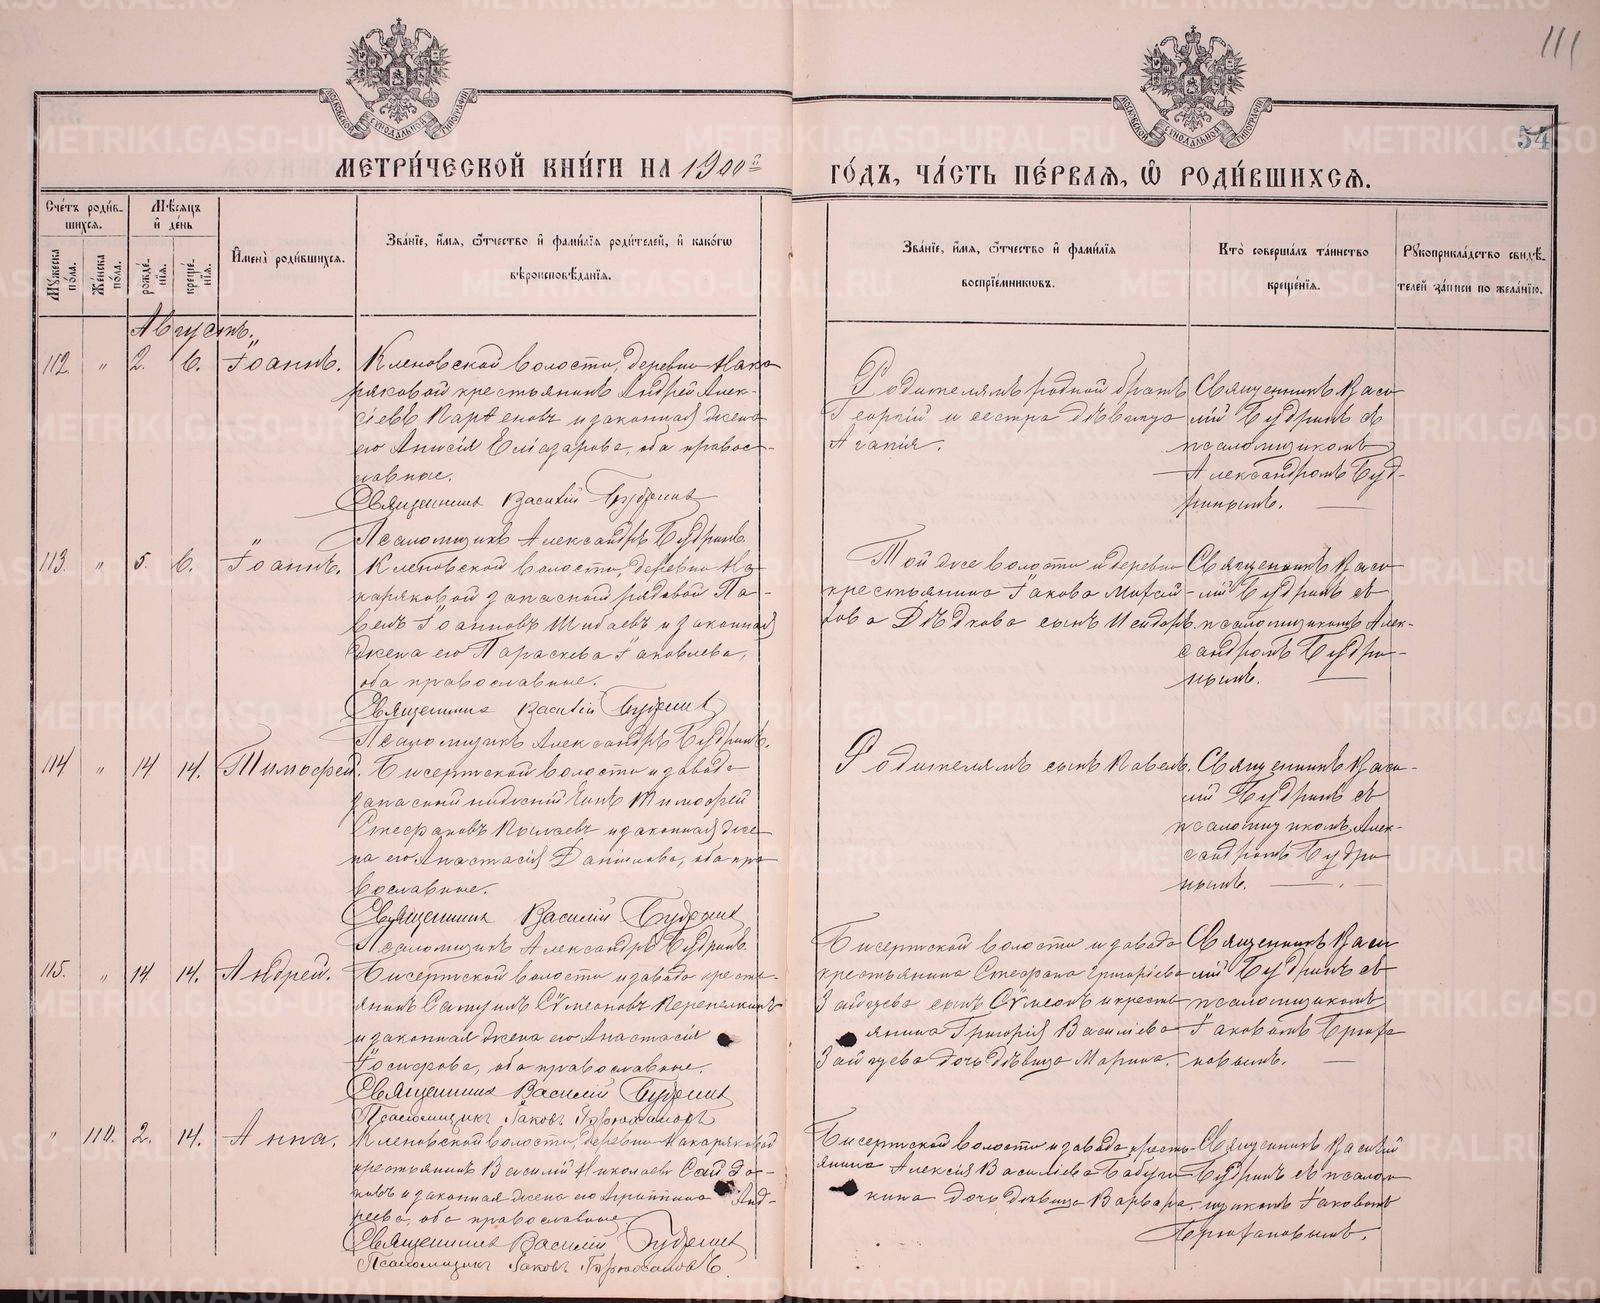 111
54
МЕТРИ́ЧЕСКОЙ КНИ́ГИ НА 1900й
ГО́ДЪ, ЧА́СТЬ ПЕ́РВАЯ, Ѡ РОДИ́ВШИХСЯ.
Сче́тъ роди́в-
шихся.
Мѣ́сяцъ
и҆ де́нь
Му́жеска
по́ла.
Же́нска
по́ла.
рожде́-
нїя.
креще́-
нїя.
И҆мена̀ роди́вшихся.
Зва́нїе, и҆́мя, ѻ҆́тчество и҆ фами́лїя роди́телей, и҆ како́гѡ
вѣроисповѣ́данїя.
Зва́нїе, и҆́мя, ѻ҆́тчество и҆ фами́лїя
воспрїе́мникѡвъ.
Кто̀ соверша́лъ та́инство
креще́нїя.
Рꙋкоприкла́дство свидѣ́-
телей за́писи по жела́нїю.
Августъ.
112. " 2. 6. Іоаннъ.
Кленовской волости, деревни Нака-
ряковой крестьянинъ Андрей Алек-
сіевъ и законная жена
его Анисія Елiазарова, оба правос-
лавные.
Священникъ Василій Будринъ
Псаломщикъ Александръ Будринъ.
Родителямъ родной братъ
Георгій и сестра дѣвица
Агапія.
Священникъ Васи-
лій Будринъ съ
псаломщикомъ
Александромъ Буд-
ринымъ.
113. " 5. 6. Іоаннъ.
Кленовской волости, деревни На-
каряковой запасной рядовой Па-
велъ Іоанновъ Шибаевъ и законная
жена его Параскева Іаковлева,
оба православные.
Священникъ Василій Будринъ
Псаломщикъ Александръ Будринъ.
Той же волости и деревни
крестьянина Іакова Михай-
лова Дѣдкова сынъ Исидоръ.
Священникъ Васи-
лій Будринъ съ
псаломщикомъ Алек-
сандромъ Будри-
нымъ.
114 " 14 14. Тимофей.
Бисертской волости и завода
запасной Тимофей
Стефановъ и законная же-
на его Анастасія Даніилова, оба пра-
вославные.
Священникъ Василій Будринъ
Псаломщикъ Александръ Будринъ.
Родителямъ сынъ Павелъ.
Священникъ Васи-
лій Будринъ съ
псаломщикомъ Алек-
сандромъ Будри-
нымъ.
115. " 14 14. Андрей.
Бисертской волости и завода кресть-
янинъ Самуилъ Сѵмеоновъ Перепелкинъ
и законная жена его Анастасія
Іосифова, оба православные.
Священникъ Василій Будринъ
Псаломщикъ Іаковъ Брюхановъ
Бисертской волости и завода
крестьянина Стефана Григоріева
Зайцева сынъ Сѵмеонъ и кресть-
янина Григорія Василіева
Зайцева дочь дѣвица Марина.
Священникъ Васи-
лій Будринъ съ
псаломщикомъ
Іаковомъ Брюха-
новымъ.
" 110. 2. 14. Анна.
Кленовской волости, деревни Накаряковой
крестьянинъ Василій Николаевъ
и законная жена его Агриппина Анд-
реева, оба православные
Священникъ Василій Будринъ
Псаломщикъ Іаковъ Брюхановъ.
Бисертской волости и завода кресть-
янина Алексія Василіева Бабуш-
кина дочь дѣвица Варвара.
Священникъ Василій
Будринъ съ псалом-
щикомъ Іаковомъ
Брюхановымъ.
METRIKI.GASO-URAL.RU